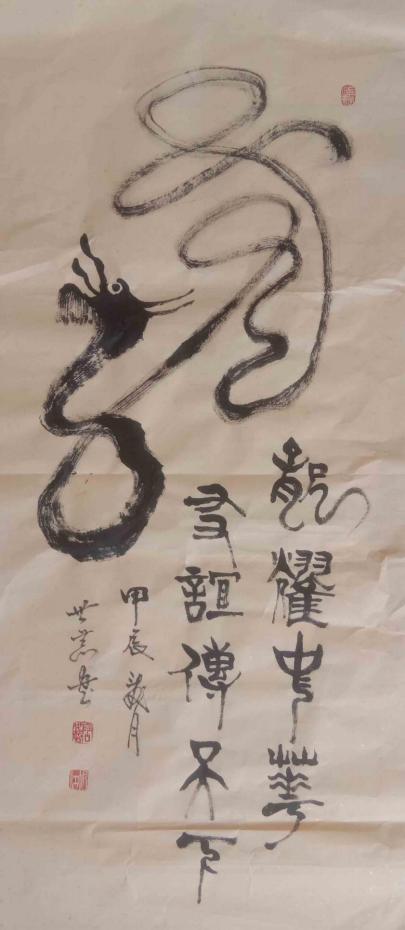 龍耀中華
友誼傳天下
甲辰歲月
世